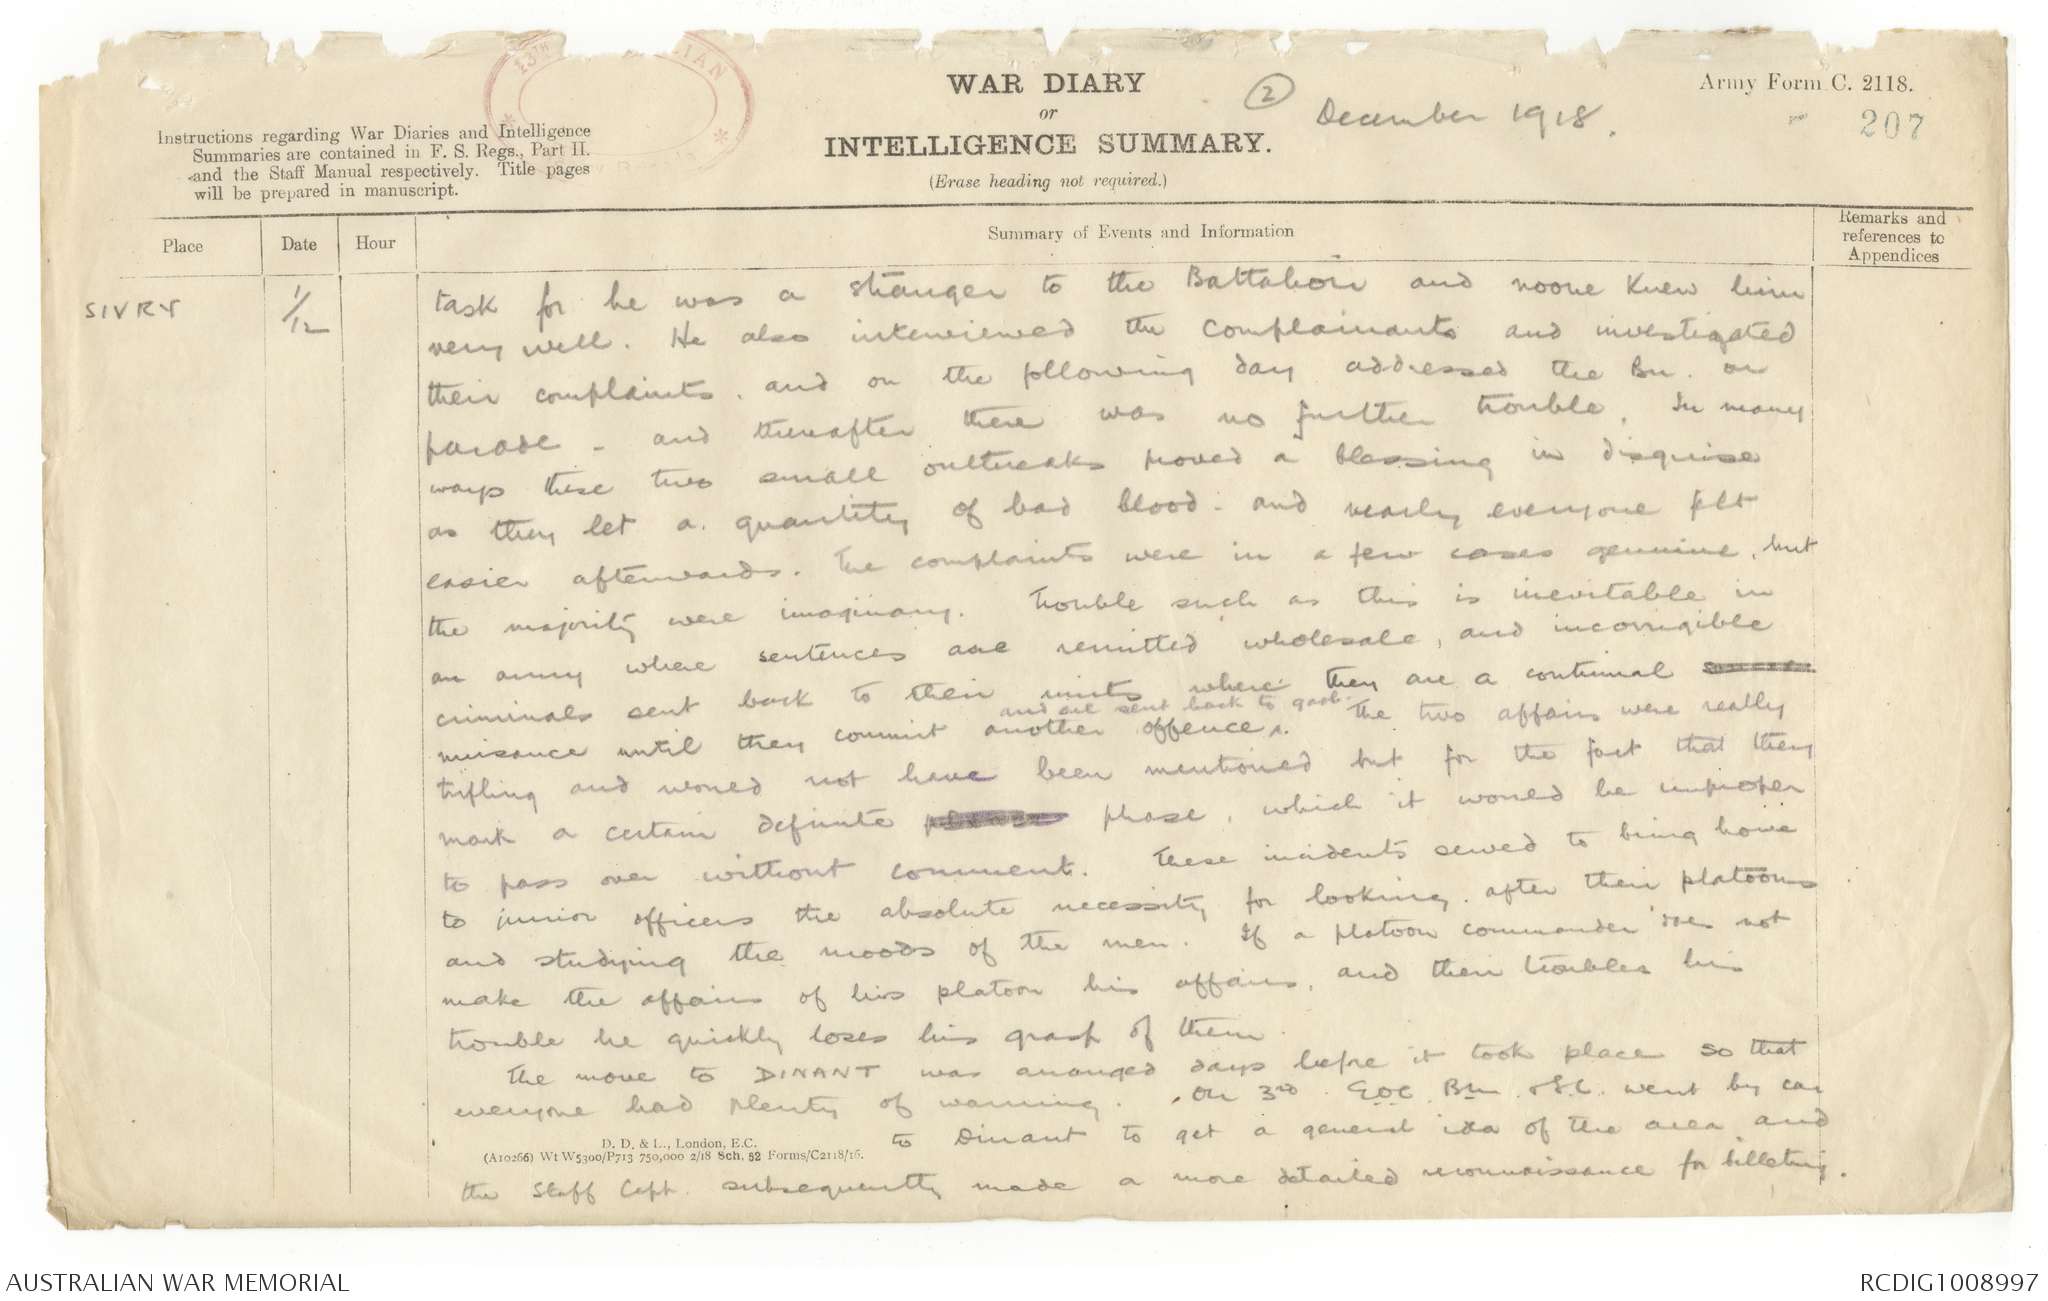 13TH
IAN
WAR DIARY
or
INTELLIGENCE SUMMARY.
(Erase heading not required.)
2
December 1918.
Army Form C. 2118.
207
Instructions regarding War Diaries and Intelligence
Summaries are contained in F. S. Regs., Part II.
and the Staff Manual respectively. Title pages
will be prepared in manuscript.
Place
Date
Hour
Summary of Events and Information
Remarks and
references to
Appendices
SIVRY
1/12
task for he was a stranger to the Battalion and noone knew him
very well. He also interviewed the complainants and investigated
their complaints. and on the following day addressed the Bn. on
parade - and thereafter there was no further trouble. In many
ways these two small outbreaks proved a blessing in disguise
as they let a quantity of bad blood. and nearly everyone felt
easier afterwards. The complaints were in a few cases genuine, but
the majority were imaginary. Trouble such as this is inevitable in
an army where sentences are remitted wholesale, and incorrigible
criminals sent back to their units where they are a continual
and are sent back to gaol.
nuisance until they commit another offence. The two affairs were really
trifling and would not have been mentioned but for the fact that they
mark a certain definite phase, which it would be improper
to pass over without comment. These incidents served to bring home
to junior officers the absolute necessity for looking after their platoons
and studying the moods of the men. If a platoon commander does not
make the affairs of his platoon his affairs, and their troubles his
trouble he quickly loses his grasp of them.
The move to DINANT was arranged days before it took place so that
everyone had plenty of warning. On 3rd GOC Bm & S.C. went by car
to Dinant to get a general idea of the area and
D. D. & L., London, E.C.
(A10266) Wt W5300/P713 750,000 2/18 Sch. 52 Forms/C2118/16.
the Staff Capt. subsequently made a more detailed reconnaissance for billeting.
AUSTRALIAN WAR MEMORIAL
RCDIG1008997